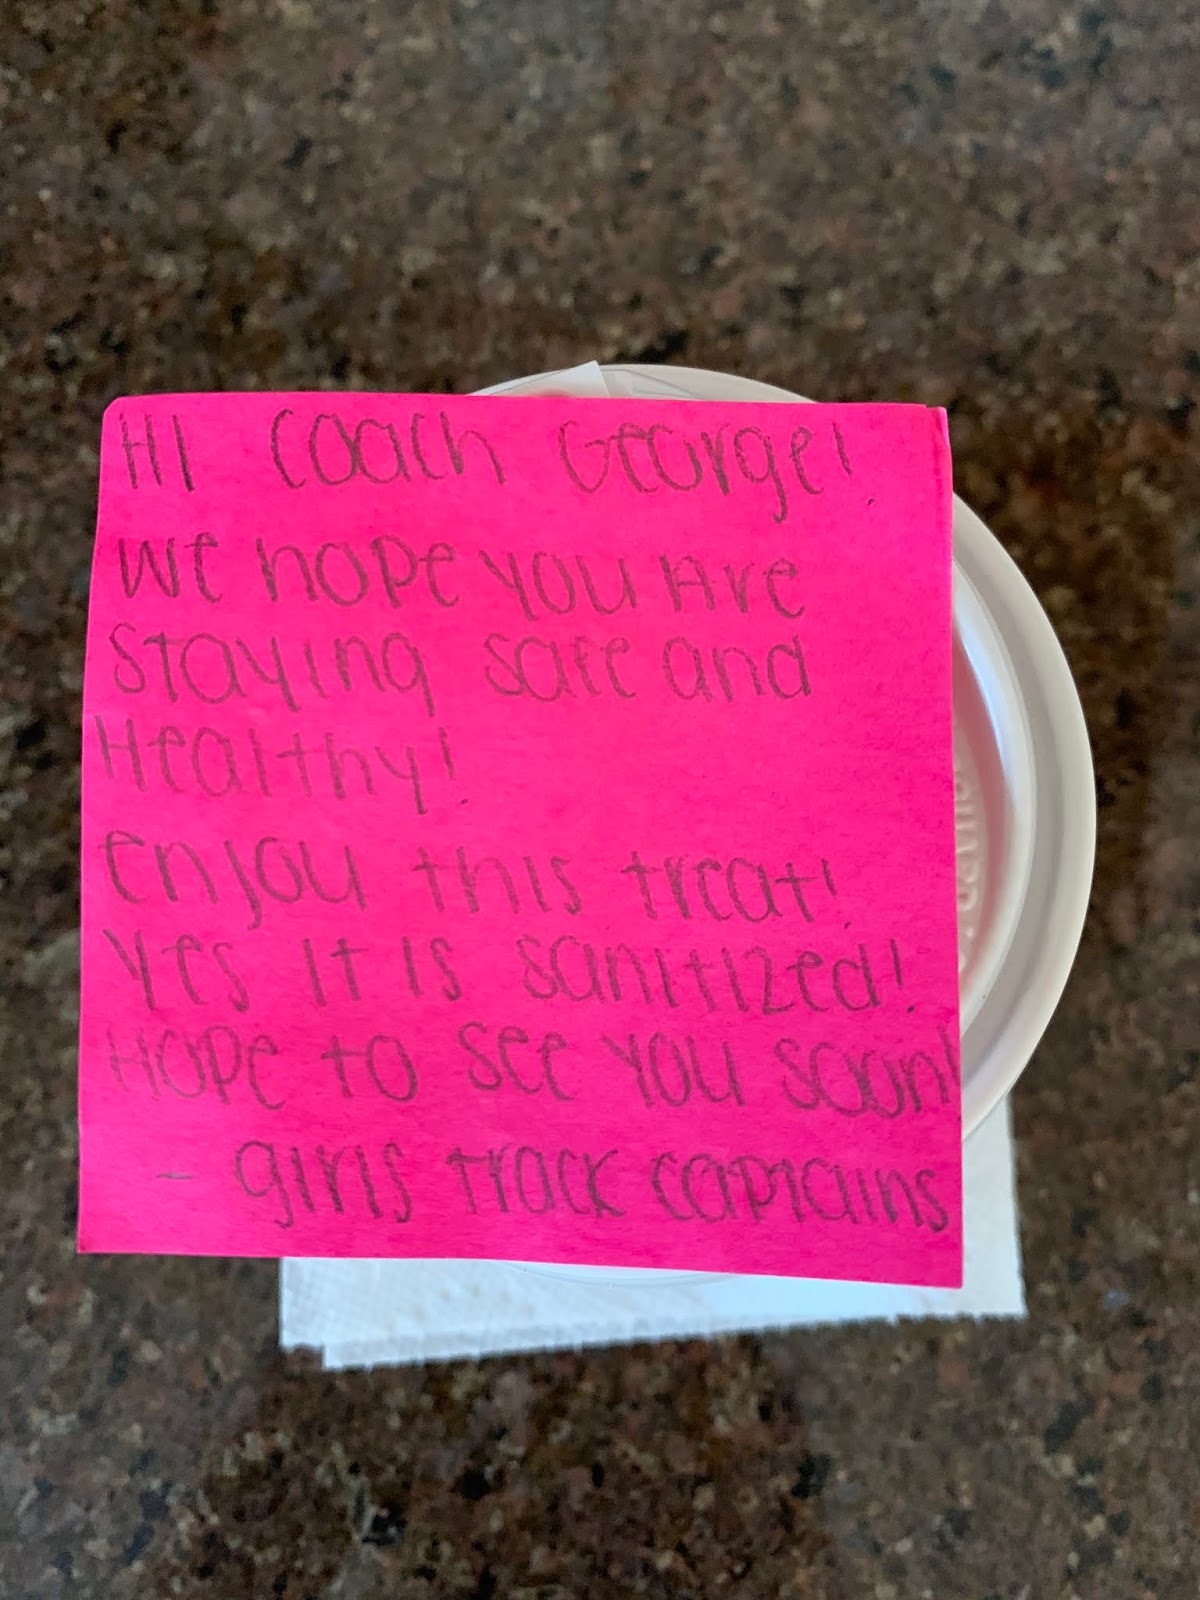 HI Coach George!
We hope you Are
staying safe and
Healthy!
enjoy this treat!
Yes it is sanitized!
Hope to see you soon!
- girls track captains